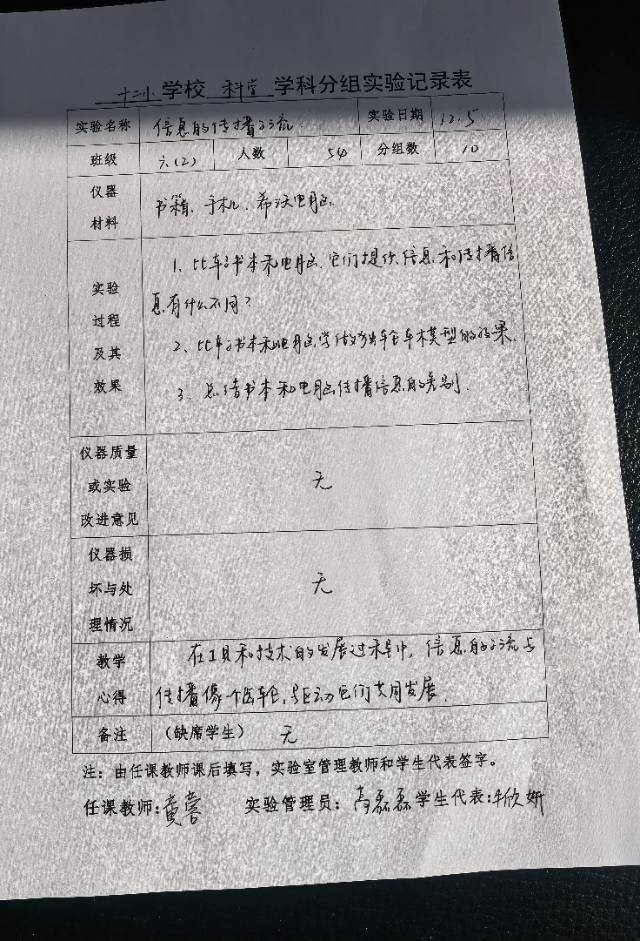 十二小学校 科学 学科分组实验记录表
实验名称 信息的传播交流 实验日期 12.5
班级 六(2) 人数 54 分组数 10
仪器
材料
书籍、手机、希沃电脑。
实验
过程
及其
效果
1、比较书本和电脑,它们提供信息和传播信
息有什么不同?
2、比较书本和电脑,学做独轮车模型的效果。
3、总结书本和电脑传播信息的差别。
仪器质量
或实验
改进意见
无
仪器损
坏与处
理情况
无
教学
心得
在工具和技术的发展过程中,信息的交流与
传播像个齿轮,驱动它们共同发展。
备注 (缺席学生) 无
注:由任课教师课后填写,实验室管理教师和学生代表签字。
任课教师: 实验管理员: 磊磊 学生代表: 欣妍